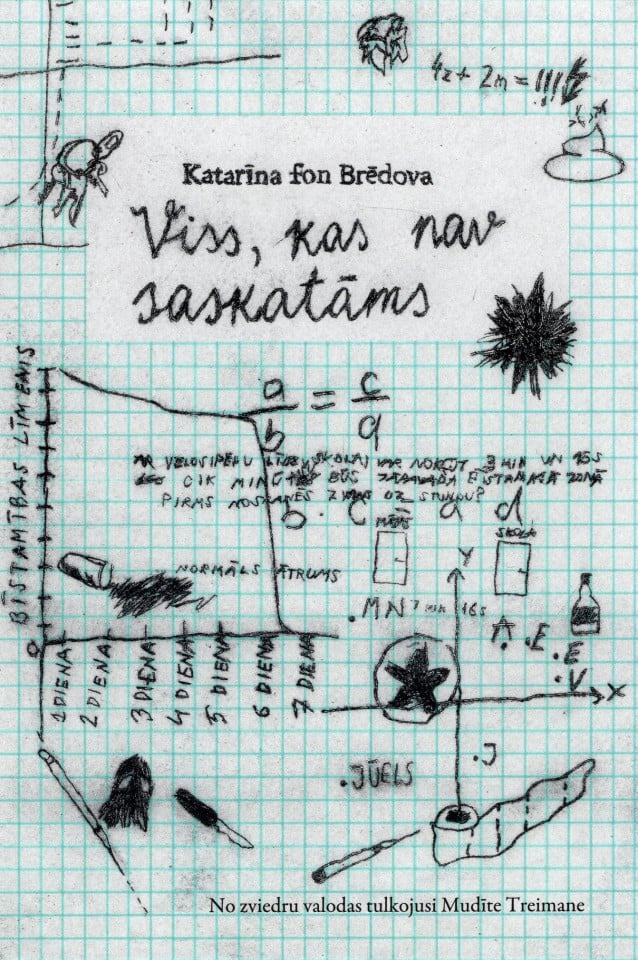 4z + 2m =
Katarīna fon Brēdova
Viss, kas nav
saskatāms
BĪSTAMĪBAS LĪMENIS
a/b = c/d
AR VELOSIPĒDU LĪDZ SKOLAI VAR NOKĻŪT 7 MIN UN 16 S
CIK MINŪTES BŪS JĀPAVADA BĪSTAMAJĀ ZONĀ
PIRMS NOSKANĒS ZVANS UZ STUNDU?
b · c a d
MĀJAS
SKOLA
NORMĀLS ĀTRUMS
Y
MN 7 MIN 16 S
A
E
E
V
X
0
1 DIENA
2 DIENA
3 DIENA
4 DIENA
5 DIENA
6 DIENA
7 DIENA
J
JŪELS
No zviedru valodas tulkojusi Mudīte Treimane